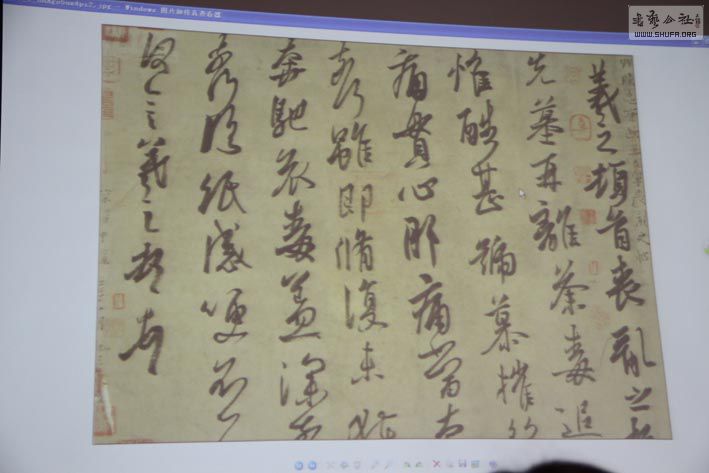 2.jpg - Windows 图片和传真查看器
書藝公社
WWW.SHUFA.ORG
羲之頓首喪亂之
先墓再離荼毒追
惟酷甚號慕摧
痛貫心肝痛當
奈何雖即脩復未
奔馳哀毒益深
奈何臨紙感哽不
何言羲之頓首